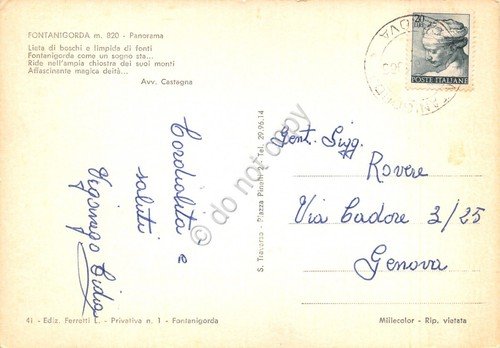 FONTANIGORDA m. 820 - Panorama
Lieta di boschi e limpida di fonti
Fontanigorda come un sogno sta...
Ride nell'ampia chiostra dei suoi monti
Affascinante magica deità...
Avv. Castagna
Cordialità e
saluti
41 - Ediz. Ferretti L. - Privativa n. 1 - Fontanigorda
S. Traverso - Piazza - Tel. 29.96.14
do not copy
POSTE ITALIANE
Gent. Sigg.
Rovere
Via Cadore 3/25
Genova
Millecolor - Rip. vietata